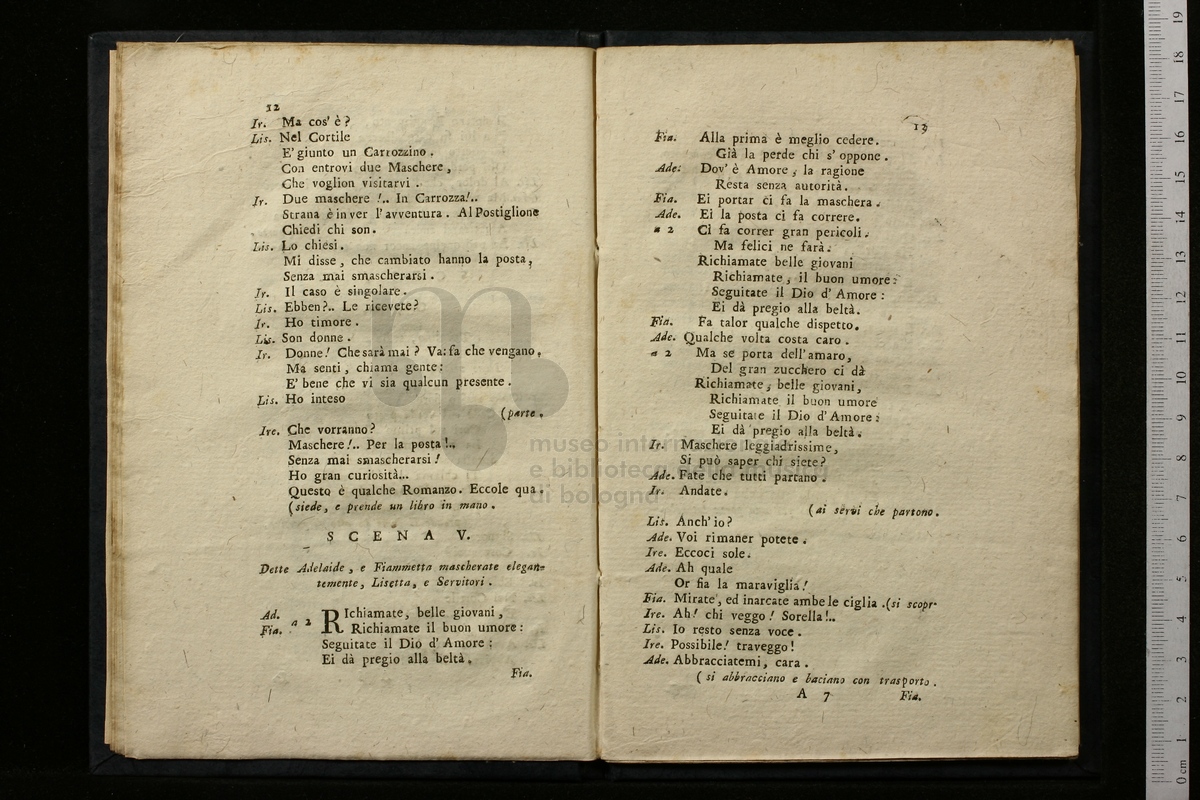 12
Ir. Ma cos' è?
Lis. Nel Cortile
E' giunto un Carrozzino.
Con entrovi due Maschere,
Che voglion visitarvi.
Ir. Due maschere!.. In Carrozza!..
Strana è in ver l'avventura. Al Postiglione
Chiedi chi son.
Lis. Lo chiesi.
Mi disse, che cambiato hanno la posta,
Senza mai smascherarsi.
Ir. Il caso è singolare.
Lis. Ebben?.. Le ricevete?
Ir. Ho timore.
Lis. Son donne.
Ir. Donne! Che sarà mai? Va: fa che vengano,
Ma senti, chiama gente:
E' bene che vi sia qualcun presente.
Lis. Ho inteso
(parte.
Ire. Che vorranno?
Maschere!.. Per la posta!..
Senza mai smascherarsi!
Ho gran curiosità...
Questo è qualche Romanzo. Eccole qua.
(siede, e prende un libro in mano.
SCENA V.
Dette Adelaide, e Fiammetta mascherate elegan-
temente, Lisetta, e Servitori.
Ad. Fia. a 2 RIchiamate, belle giovani,
Richiamate il buon umore:
Seguitate il Dio d' Amore:
Ei dà pregio alla beltà.
Fia.
13
Fia. Alla prima è meglio cedere.
Già la perde chi s' oppone.
Ade: Dov' è Amore, la ragione
Resta senza autorità.
Fia. Ei portar ci fa la maschera.
Ade. Ei la posta ci fa correre.
a 2 Ci fa correr gran pericoli.
Ma felici ne farà.
Richiamate belle giovani
Richiamate, il buon umore:
Seguitate il Dio d' Amore:
Ei dà pregio alla beltà.
Fia. Fa talor qualche dispetto.
Ade. Qualche volta costa caro.
a 2 Ma se porta dell'amaro,
Del gran zucchero ci dà
Richiamate, belle giovani,
Richiamate il buon umore
Seguitate il Dio d' Amore:
Ei dà pregio alla beltà.
Ir. Maschere leggiadrissime,
Si può saper chi siete?
Ade. Fate che tutti partano.
Ir. Andate.
(ai servi che partono.
Lis. Anch' io?
Ade. Voi rimaner potete.
Ire. Eccoci sole.
Ade. Ah quale
Or fia la maraviglia!
Fia. Mirate, ed inarcate ambe le ciglia. (si scopr.
Ire. Ah! chi veggo! Sorella!..
Lis. Io resto senza voce.
Ire. Possibile! traveggo!
Ade. Abbracciatemi, cara.
(si abbracciano e baciano con trasporto.
A 7 Fia.
museo internazionale
e biblioteca della musica
di bologna
0 cm 1 2 3 4 5 6 7 8 9 10 11 12 13 14 15 16 17 18 19